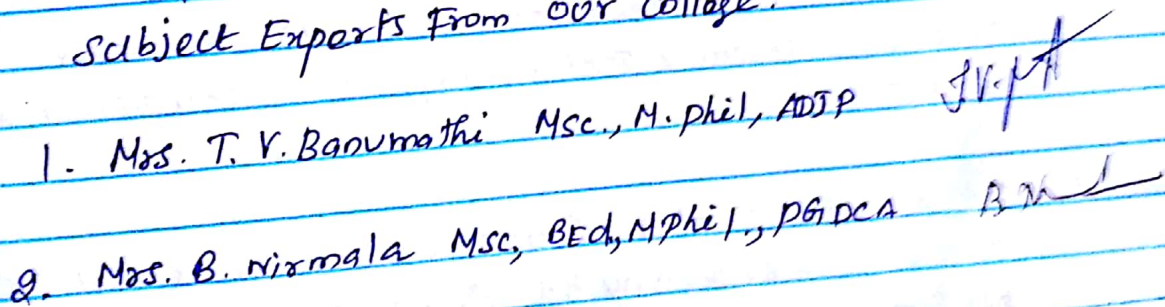 Subject Experts From our College.
1. Mrs. T. V. Banumathi Msc., M. phil, ADJP
2. Mrs. B. Nirmala Msc, BEd, MPhil., PGDCA